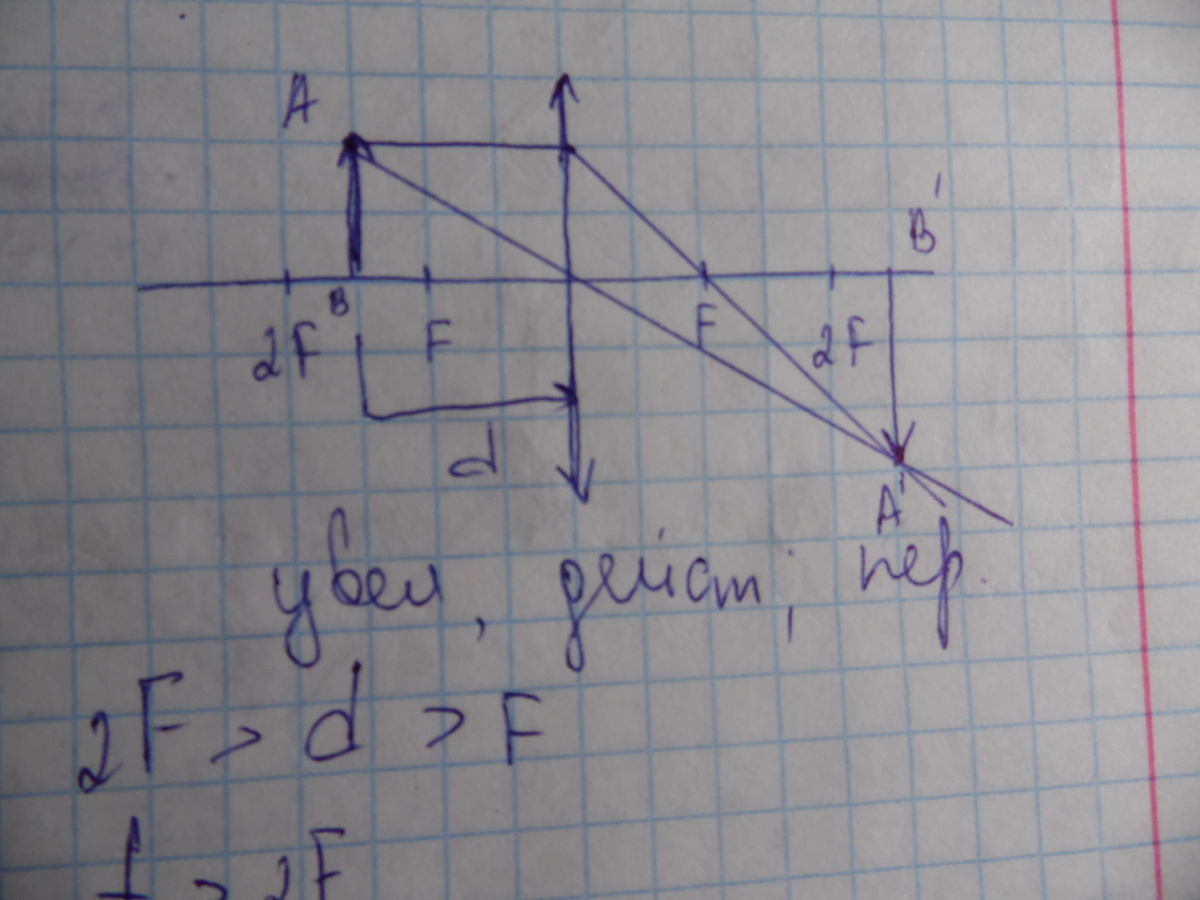 A
B'
B
2F F F 2F
d
A'
увел, действ, пер.
2F > d > F
f > 2F